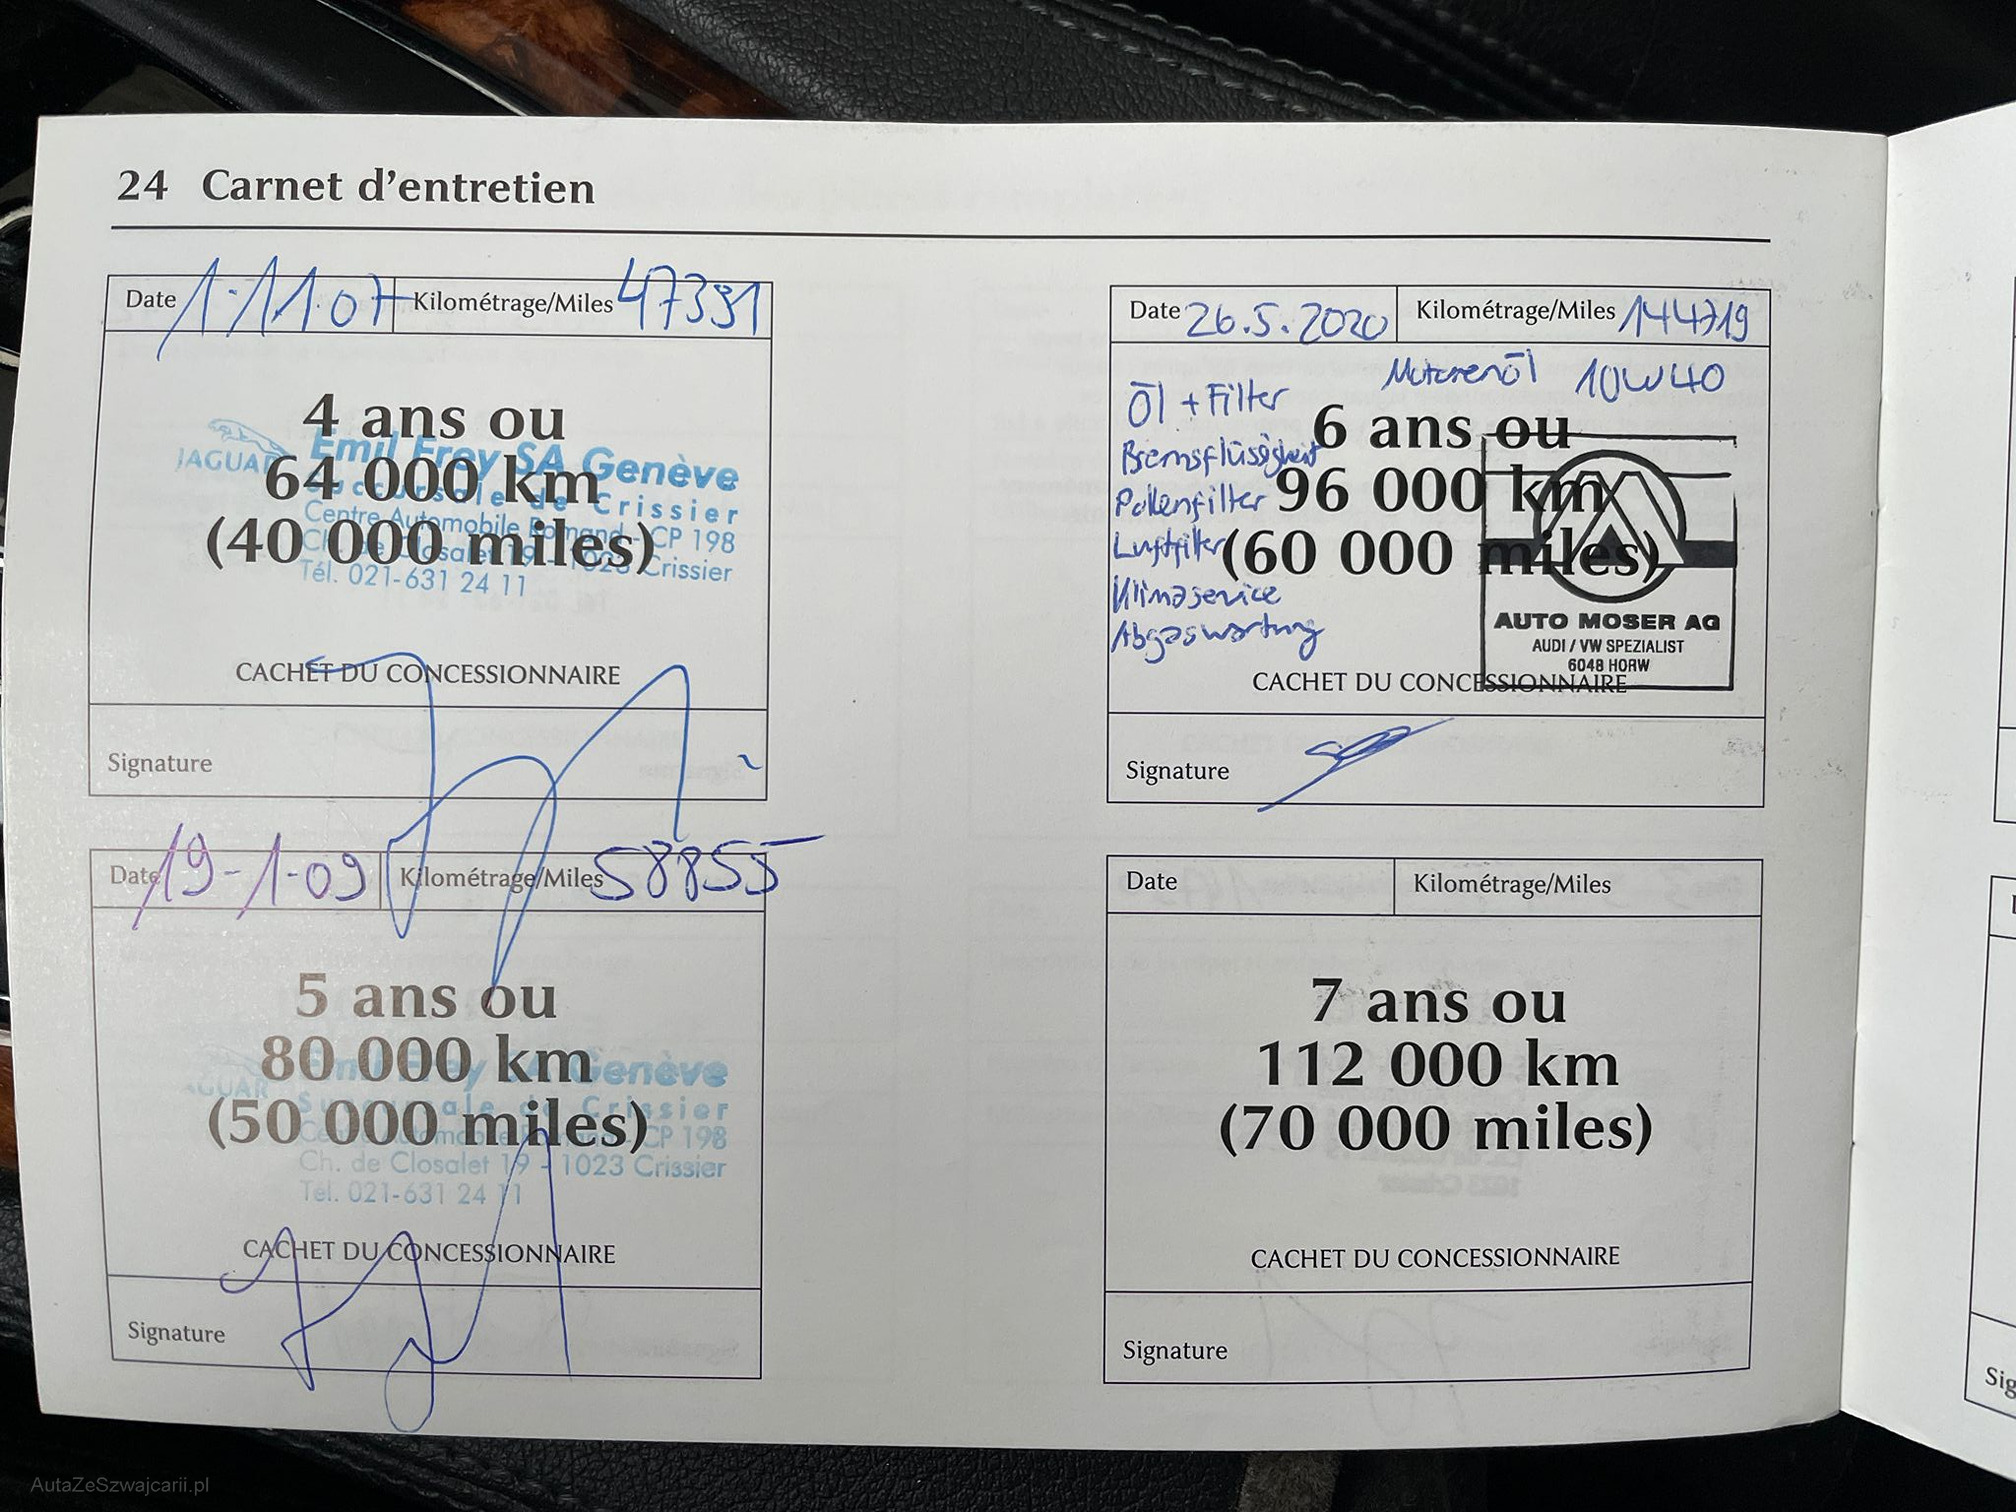 24 Carnet d'entretien
Date 1-11-07 Kilométrage/Miles 47391
4 ans ou
64 000 km
(40 000 miles)
JAGUAR
Emil Frey SA Genève
Succursale de Crissier
Centre Automobile Romand - CP 198
Ch. de Closalet 19 - 1023 Crissier
Tél. 021-631 24 11
CACHET DU CONCESSIONNAIRE
Signature
Date 19-1-09 Kilométrage/Miles 58855
5 ans ou
80 000 km
(50 000 miles)
JAGUAR
Emil Frey SA Genève
Succursale de Crissier
Centre Automobile Romand - CP 198
Ch. de Closalet 19 - 1023 Crissier
Tél. 021-631 24 11
CACHET DU CONCESSIONNAIRE
Signature
Date 26.5.2020 Kilométrage/Miles 144719
Motorenöl 10W40
Öl + Filter
Bremsflüssigkeit
Pollenfilter
Luftfilter
Klimaservice
Abgaswartung
6 ans ou
96 000 km
(60 000 miles)
AUTO MOSER AG
AUDI / VW SPEZIALIST
6048 HORW
CACHET DU CONCESSIONNAIRE
Signature
Date Kilométrage/Miles
7 ans ou
112 000 km
(70 000 miles)
CACHET DU CONCESSIONNAIRE
Signature
Sig
AutaZeSzwajcarii.pl